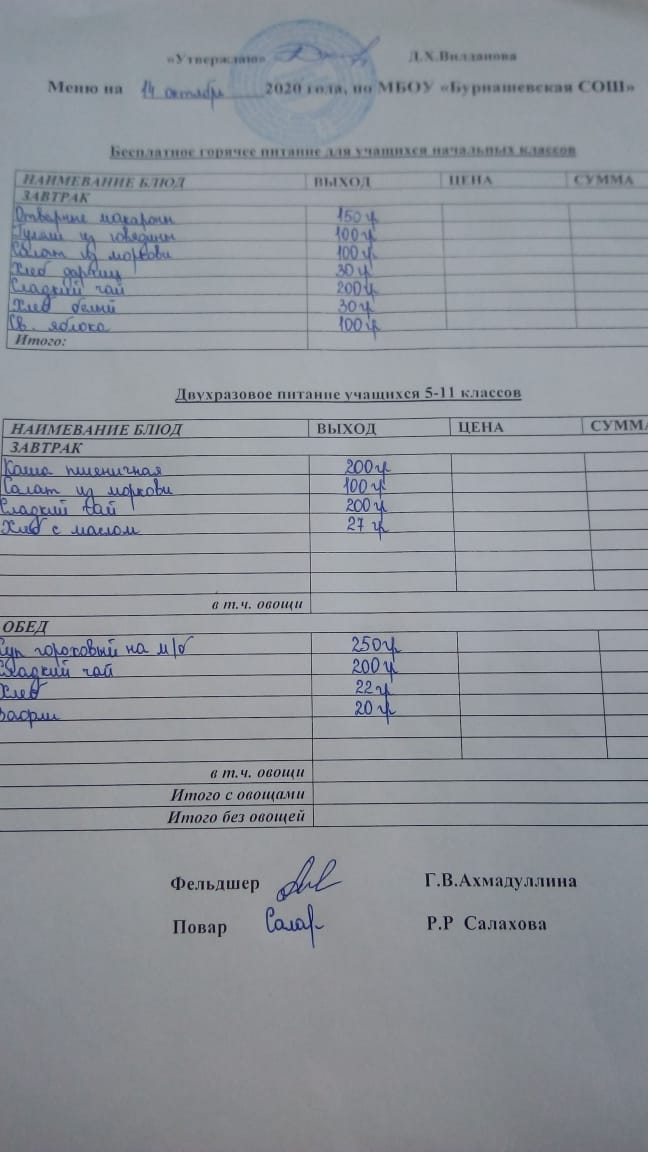 «Утверждаю» Л.Х.Вилданова
Меню на 14 октября 2020 года, по МБОУ «Бурнашевская СОШ»
Бесплатное горячее питание для учащихся начальных классов
НАИМЕВАНИЕ БЛЮД ВЫХОД ЦЕНА СУММА
ЗАВТРАК
Отварные макароны 150 гр
Гуляш из говядины 100 гр
Салат из моркови 100 гр
Хлеб дарниц 30 гр
Сладкий чай 200 гр
Хлеб белый 30 гр
Св. яблоко 100 гр
Итого:
Двухразовое питание учащихся 5-11 классов
НАИМЕВАНИЕ БЛЮД ВЫХОД ЦЕНА СУММА
ЗАВТРАК
Каша пшеничная 200 гр
Салат из моркови 100 гр
Сладкий чай 200 гр
Хлеб с маслом 27 гр
в т.ч. овощи
ОБЕД
Суп гороховый на м/б 250 гр
Сладкий чай 200 гр
Хлеб 22 гр
Вафли 20 гр
в т.ч. овощи
Итого с овощами
Итого без овощей
Фельдшер Г.В.Ахмадуллина
Повар Салах Р.Р Салахова